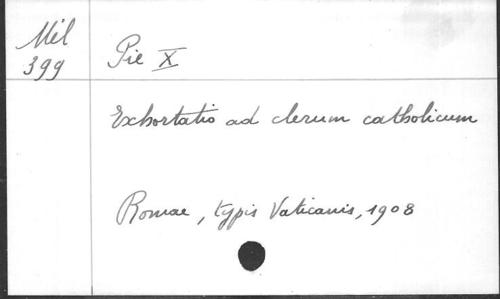 Mél
399
Pie X
Exhortatio ad clerum catholicum
Romae, typis Vaticanis, 1908